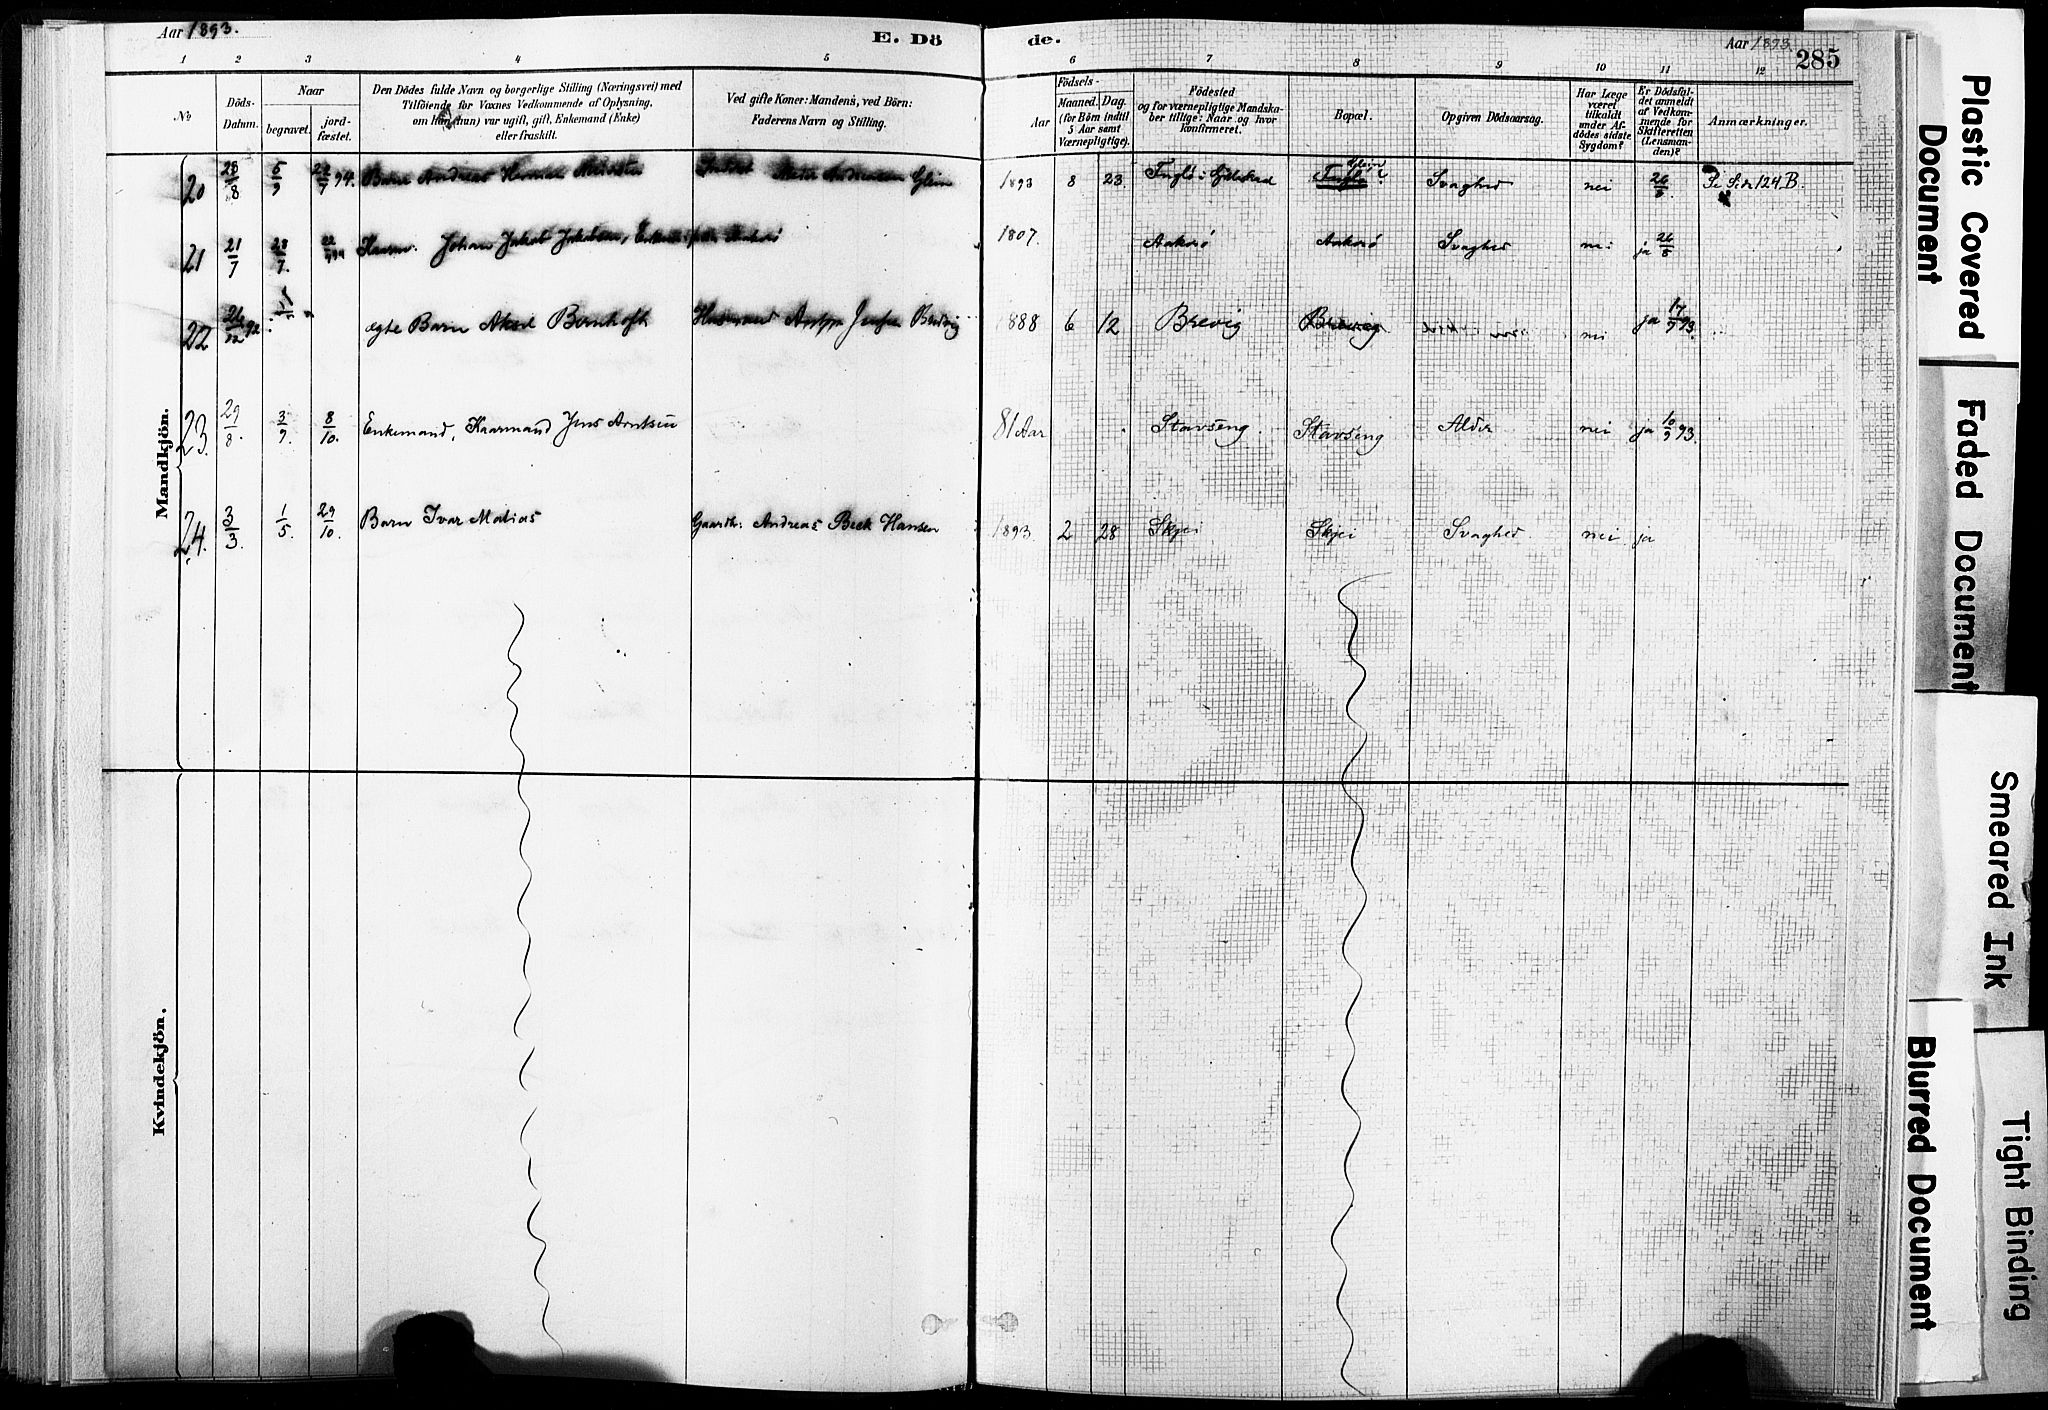 Aar 1893.
E. Dö
de.
Aar 1893.
285
1 2 3 4 5 6 7 8 9 10 11 12
No
Döds-Datum.
Naar
begravet.
jord-fæstet.
Den Dödes fulde Navn og borgerlige Stilling (Næringsvei) med
Tilföiende for Voxnes Vedkommende af Oplysning,
om han (hun) var ugift, gift, Enkemand (Enke)
eller fraskilt.
Ved gifte Koner: Mandens, ved Börn:
Faderens Navn og Stilling.
Födsels-
Aar
Maaned. Dag.
(for Börn indtil
5 Aar samt
Værnepligtige).
Födested
og for værnepligtige Mandska-
ber tillige: Naar og hvor
konfirmeret.
Bopæl.
Opgiven Dödsaarsag.
Har Læge
været
tilkaldt
under Af-
dödes sidste
Sygdom?
Er Dödsfal-
det anmeldt
af Vedkom-
mende for
Skifteretten
(Lensman-
den)?
Anmærkninger.
Mandkjön.
20 28/8 5/9 22/7 94. Barn Andreas Glein 1893 8 23. Svaghed nei 26/8. 124 B.
21 21/7 23/7. Johan Jakob Jakobsen, 1807. Svaghed nei ja 26/8
22 ægte Barn Aksel Bernhoft Husmand Jensen 1888 6 12 Brevig Brevig nei ja 17/9 93.
23. 29/8. 3/9. 8/10. Enkemand, Kaarmand Jens Arntsen 81 Aar Stavseng. Stavseng Alder nei ja 10/9 93.
24. 3/3. 1/5. 29/10. Barn Ivar Matias Gaardb: Andreas Beck Hansen 1893. 2 28 Skjei Skjei Svaghed. nei ja
Kvindekjön.
Plastic Covered
Document
Faded Document
Smeared Ink
Blurred Document
Tight Binding